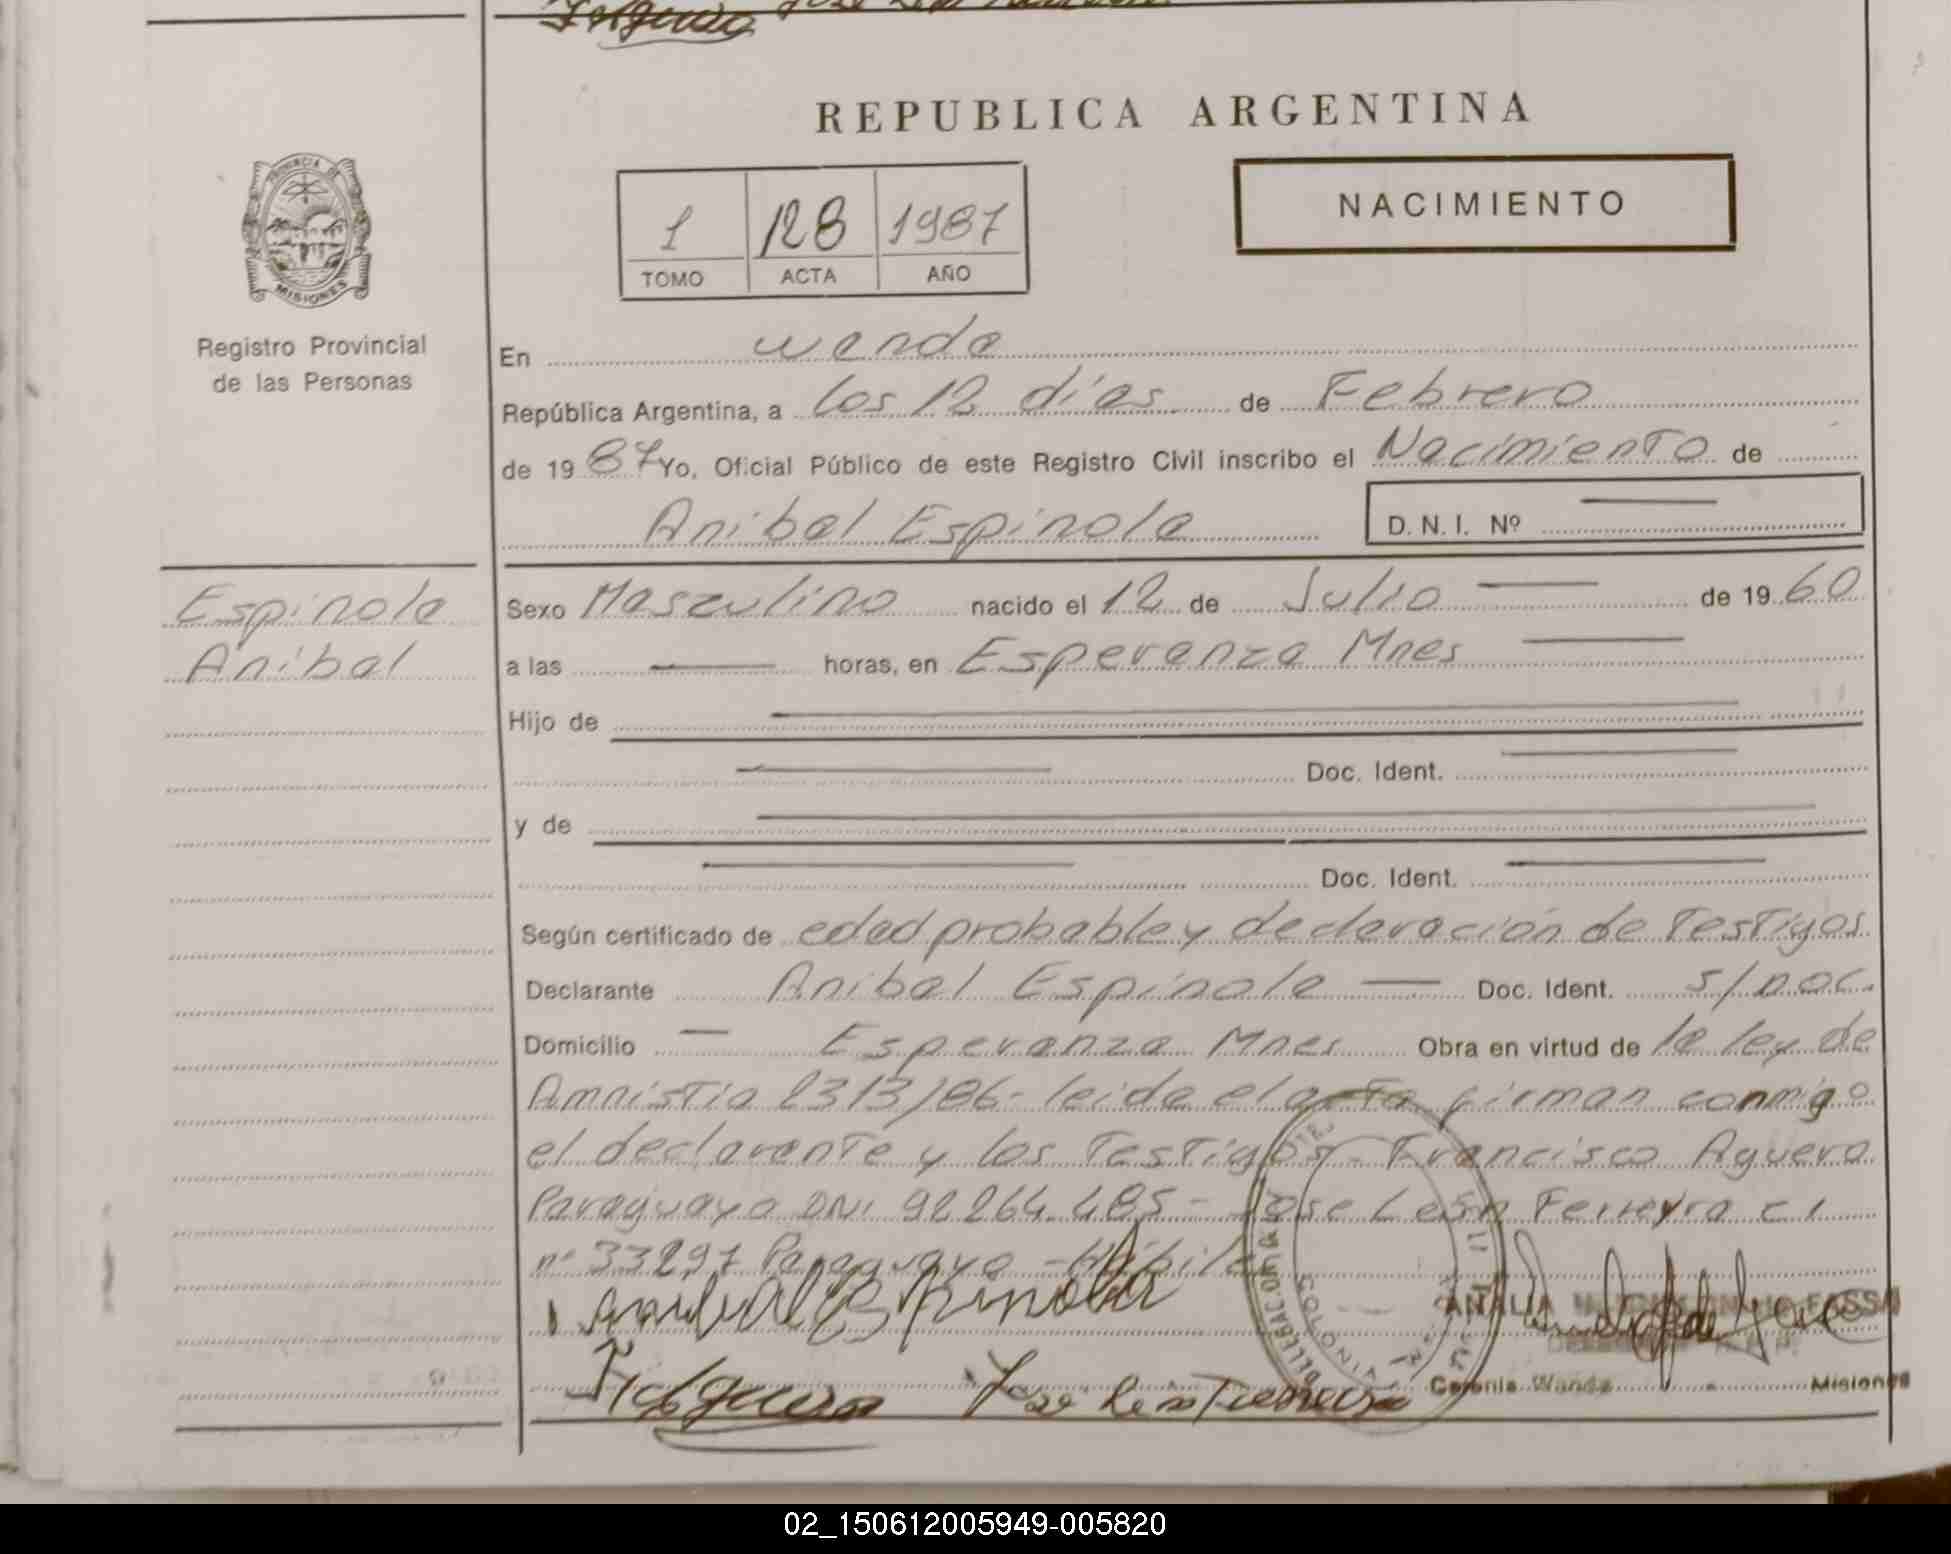 REPUBLICA ARGENTINA
PROVINCIA DE
MISIONES
Registro Provincial
de las Personas
1 128 1987
TOMO ACTA AÑO
NACIMIENTO
En wanda
República Argentina, a los 12 días de Febrero
de 1987 Yo, Oficial Público de este Registro Civil inscribo el Nacimiento de
Anibal Espinola D.N.I. Nº —
Espinola
Anibal
Sexo Masculino nacido el 12 de Julio — de 1960
a las — horas, en Esperanza Mnes —
Hijo de —
— Doc. Ident. —
y de —
— Doc. Ident. —
Según certificado de edad probable y declaración de Testigos
Declarante Anibal Espinola — Doc. Ident. s/Doc.
Domicilio — Esperanza Mnes Obra en virtud de la ley de
Amnistia 2313/86- leida el acta firman conmigo
el declarante y los Testigos- Francisco Aguero
Paraguayo DNI 92264.485- Jose León Ferreyra C I
nº 33297 Paraguayo - Hábil
Anibal Espinola
ANALIA
Colonia Wanda Misiones
02_150612005949-005820